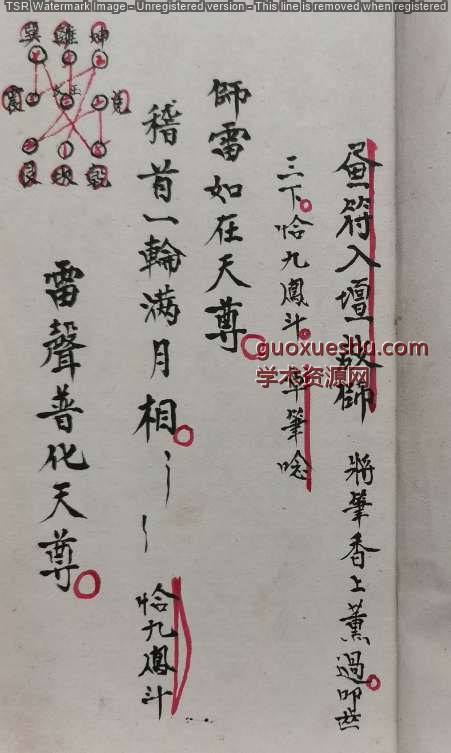 TSR Watermark Image - Unregistered version - This line is removed when registered
巽 離 坤
震 兌
艮 坎 乾
符入壇 師 將筆香上薰過。叩齒
三下。恰九鳳斗。 筆唸
師雷如在天尊。
稽首一輪滿月相。 恰九鳳斗
雷聲普化天尊。
guoxueshu.com
学术资源网